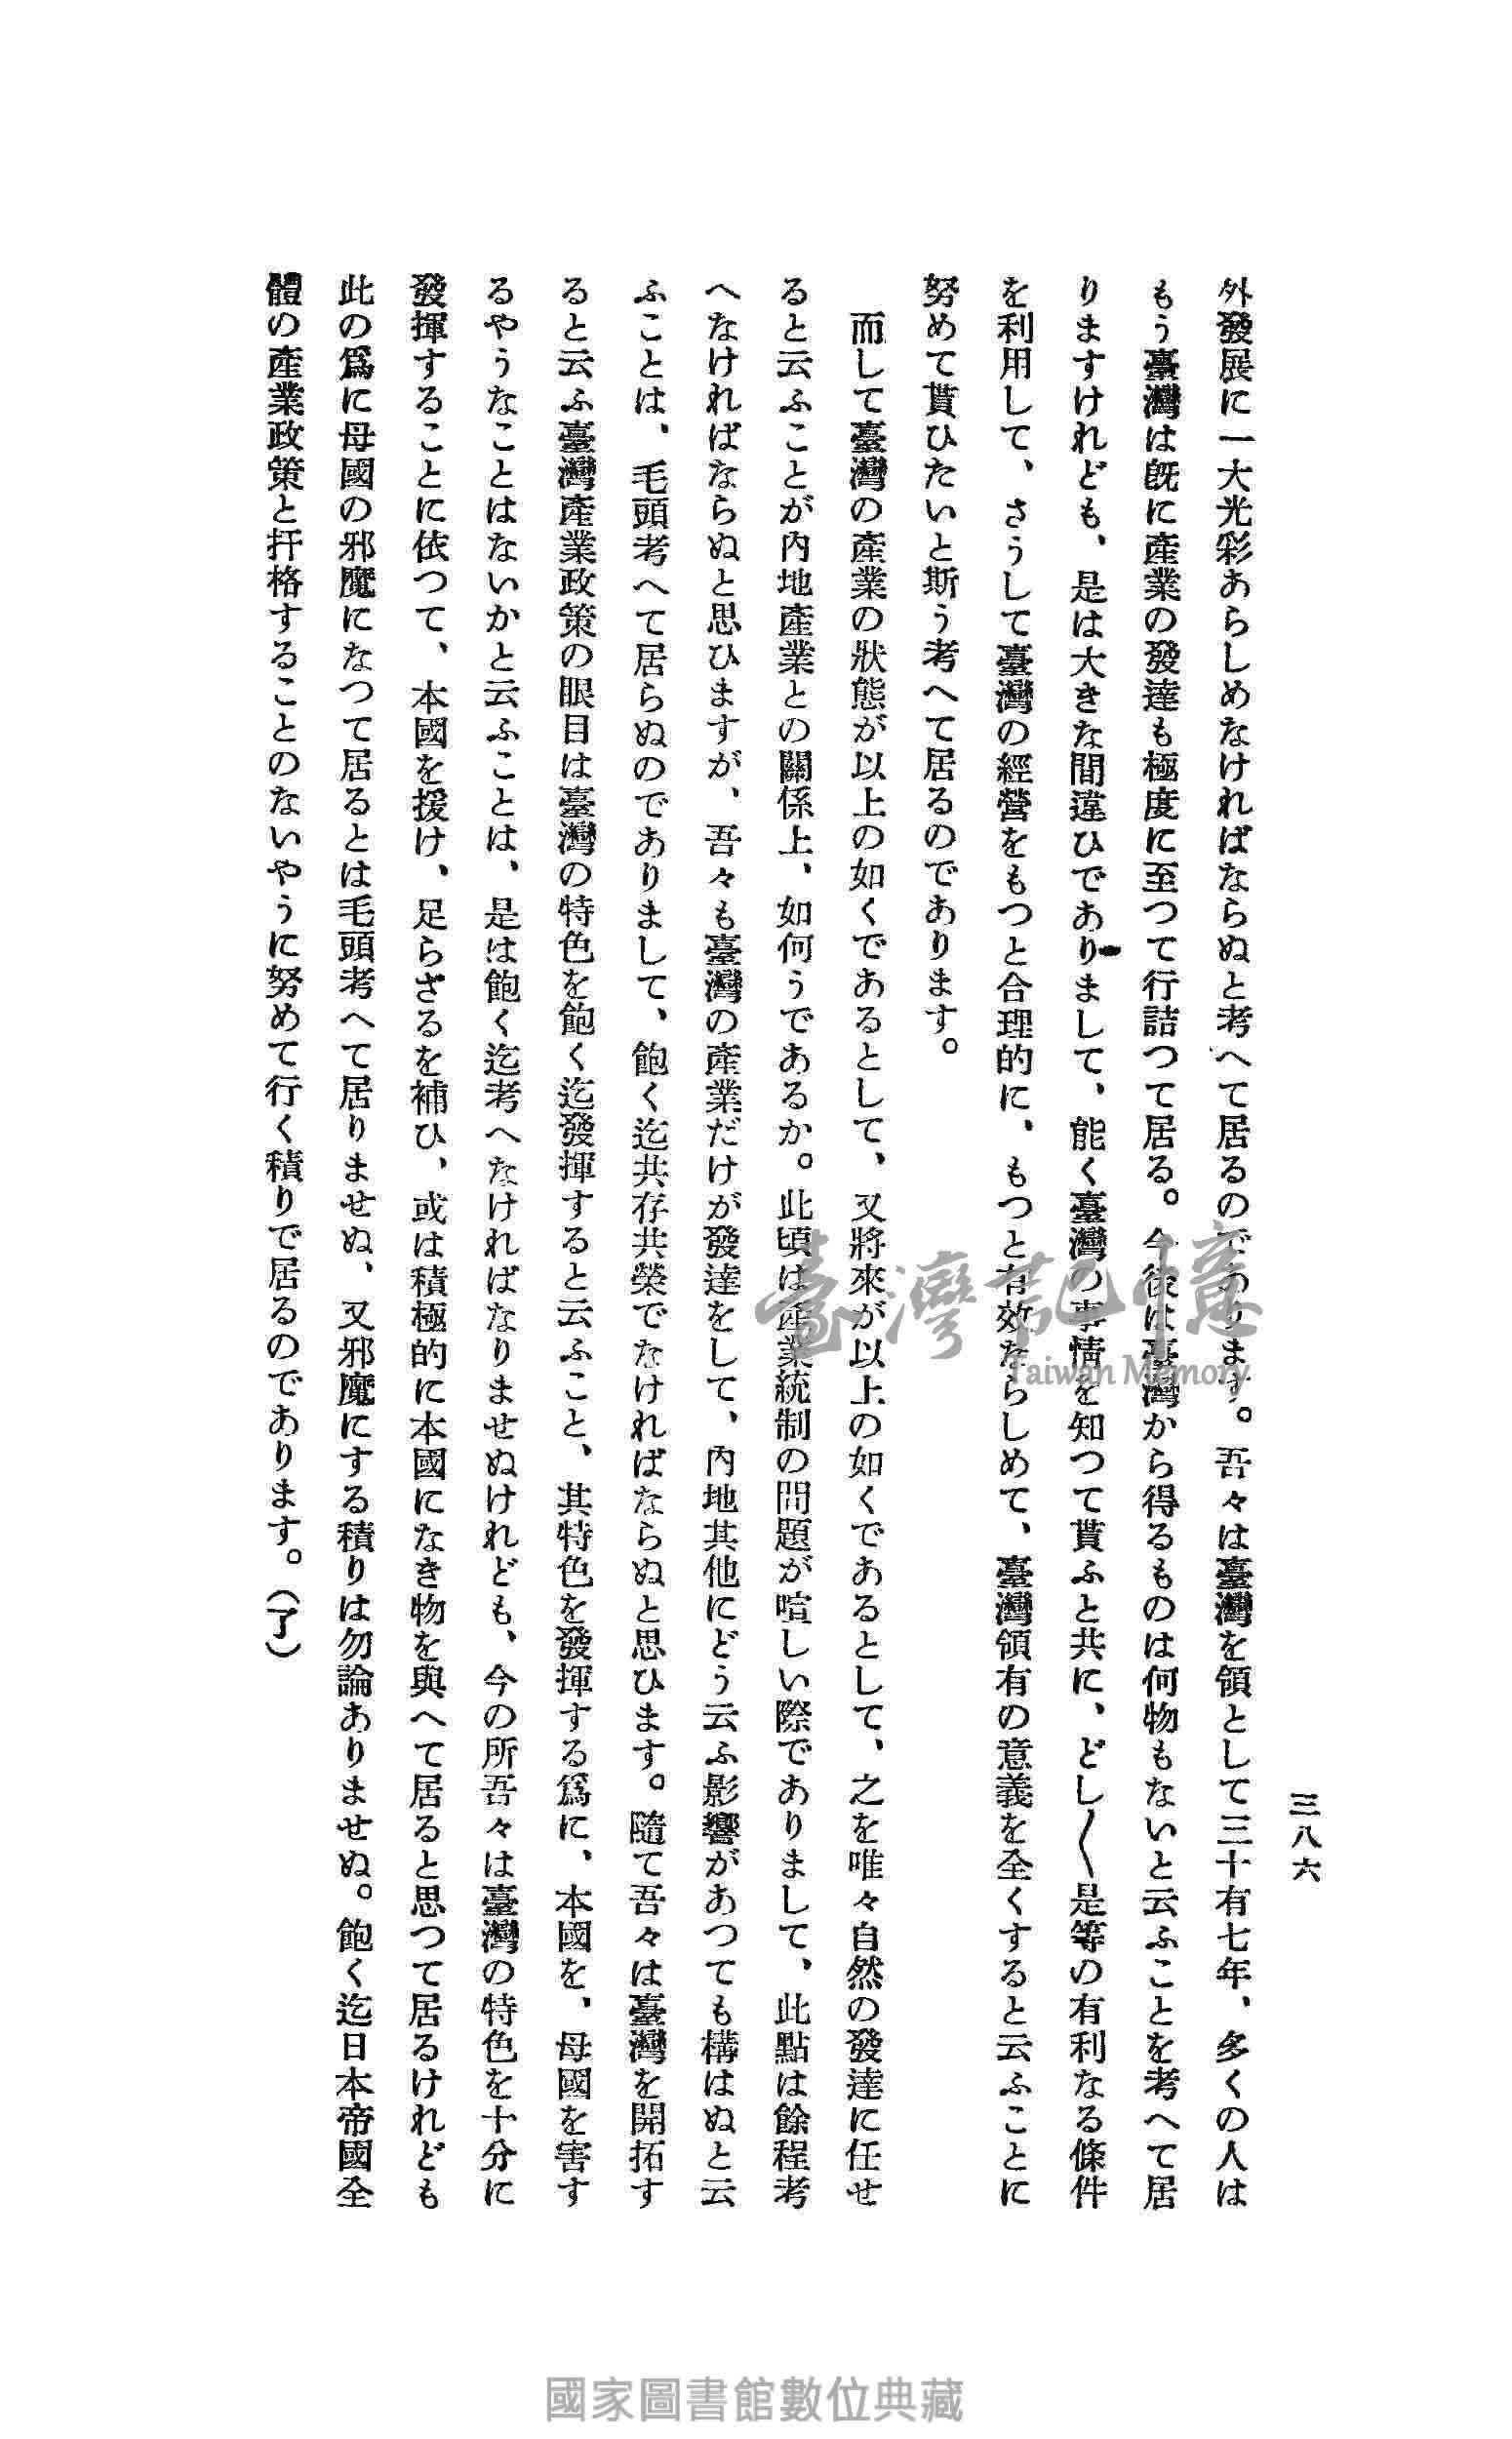 三八六
外發展に一大光彩あらしめなければならぬと考へて居るのであります。吾々は臺灣を領として三十有七年、多くの人は
もう臺灣は旣に產業の發達も極度に至つて行詰つて居る。今後は臺灣から得るものは何物もないと云ふことを考へて居
りますけれども、是は大きな間違ひでありまして、能く臺灣の事情を知つて貰ふと共に、どし〱是等の有利なる條件
を利用して、さうして臺灣の經營をもつと合理的に、もつと有效ならしめて、臺灣領有の意義を全くすると云ふことに
努めて貰ひたいと斯う考へて居るのであります。
而して臺灣の產業の狀態が以上の如くであるとして、又將來が以上の如くであるとして、之を唯々自然の發達に任せ
ると云ふことが內地產業との關係上、如何うであるか。此頃は產業統制の問題が喧しい際でありまして、此點は餘程考
へなければならぬと思ひますが、吾々も臺灣の產業だけが發達をして、內地其他にどう云ふ影響があつても構はぬと云
ふことは、毛頭考へて居らぬのでありまして、飽く迄共存共榮でなければならぬと思ひます。隨て吾々は臺灣を開拓す
ると云ふ臺灣產業政策の眼目は臺灣の特色を飽く迄發揮すると云ふこと、其特色を發揮する爲に、本國を、母國を害す
るやうなことはないかと云ふことは、是は飽く迄考へなければなりませぬけれども、今の所吾々は臺灣の特色を十分に
發揮することに依つて、本國を援け、足らざるを補ひ、或は積極的に本國になき物を與へて居ると思つて居るけれども
此の爲に母國の邪魔になつて居るとは毛頭考へて居りませぬ、又邪魔にする積りは勿論ありませぬ。飽く迄日本帝國全
體の產業政策と扞格することのないやうに努めて行く積りで居るのであります。(了)
臺灣記憶
Taiwan Memory
國家圖書館數位典藏